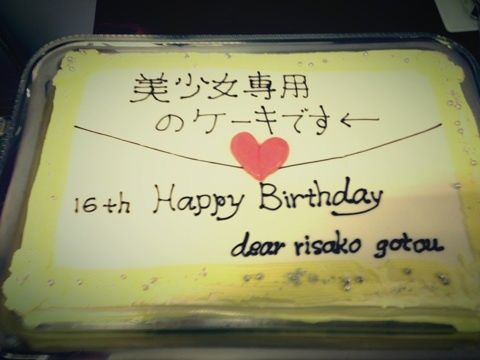 美少女専用
のケーキです←
16th Happy Birthday
dear risako gotou